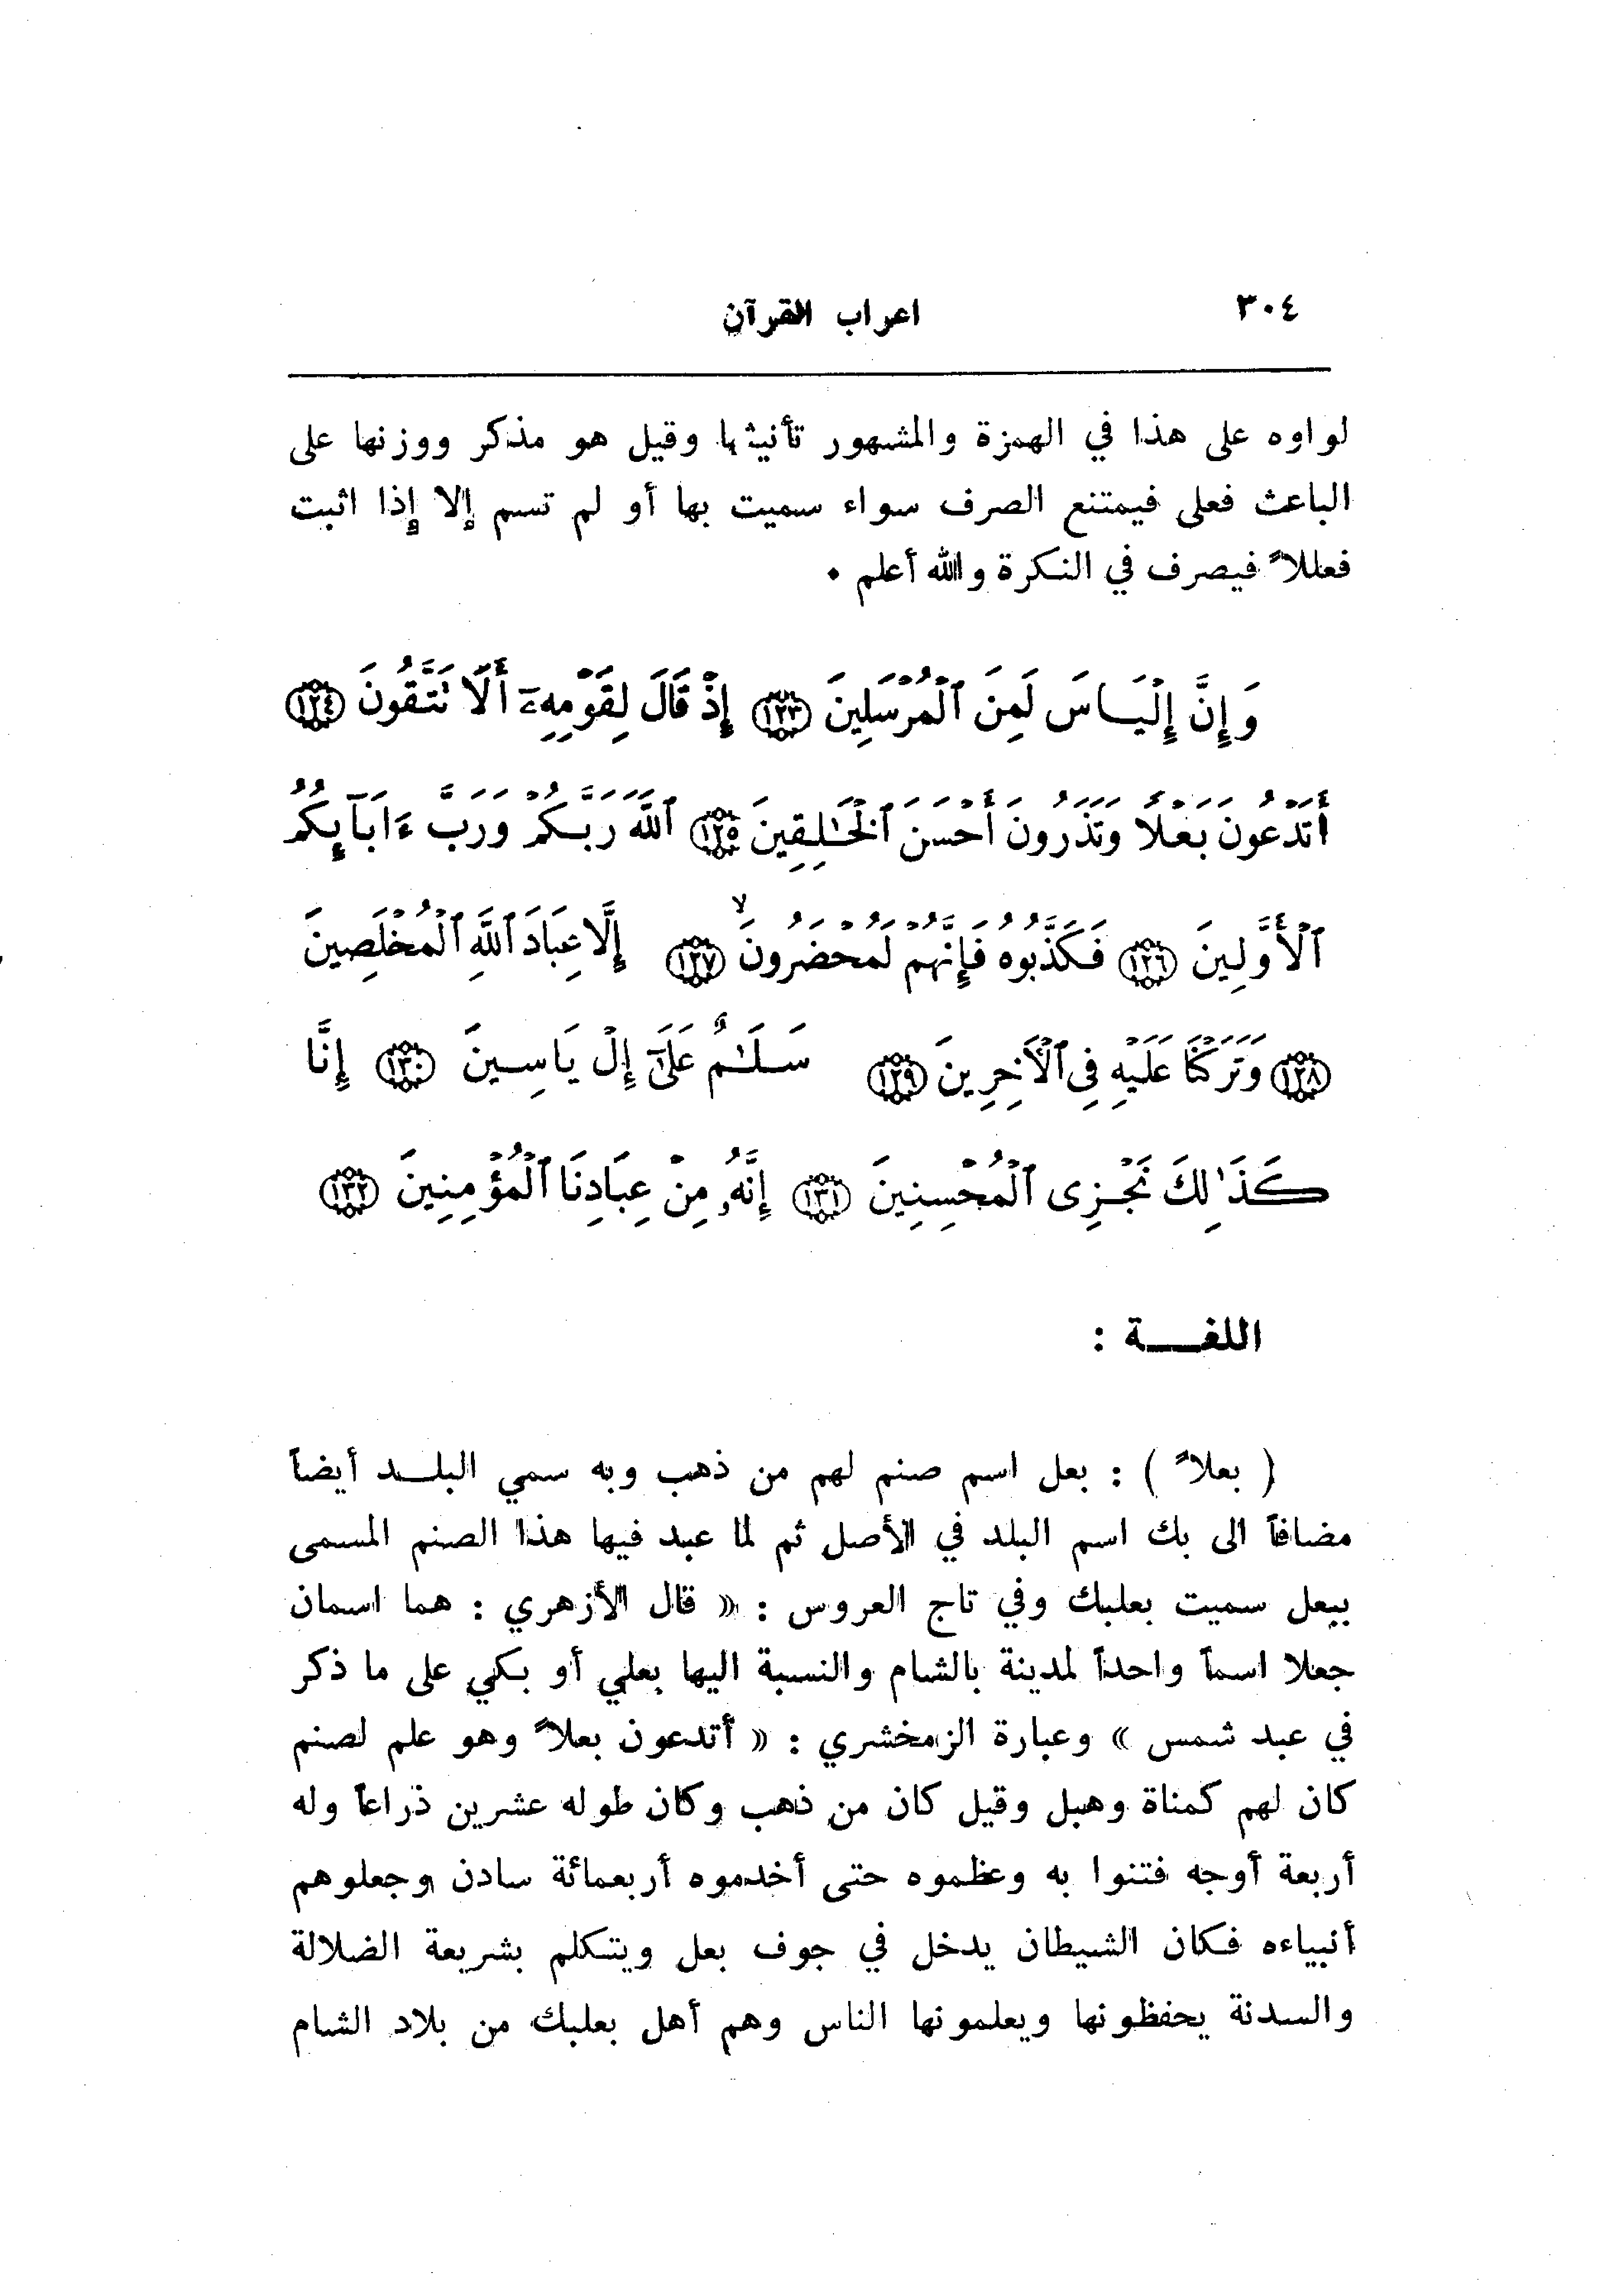 ٣٠٤ اعراب القرآن
لواوه على هذا في الهمزة والمشهور تأنيثها وقيل هو مذكر ووزنها على
الباعث فعلى فيمتنع الصرف سواء سميت بها أو لم تسم إلا إذا اثبت
فعللاً فيصرف في النكرة والله أعلم ٠
وَإِنَّ إِلْيَاسَ لَمِنَ ٱلْمُرْسَلِينَ ﴿١٢٣﴾ إِذْ قَالَ لِقَوْمِهِۦٓ أَلَا تَتَّقُونَ ﴿١٢٤﴾
أَتَدْعُونَ بَعْلًا وَتَذَرُونَ أَحْسَنَ ٱلْخَٰلِقِينَ ﴿١٢٥﴾ ٱللَّهَ رَبَّكُمْ وَرَبَّ ءَابَآئِكُمُ
ٱلْأَوَّلِينَ ﴿١٢٦﴾ فَكَذَّبُوهُ فَإِنَّهُمْ لَمُحْضَرُونَ ۙ ﴿١٢٧﴾ إِلَّا عِبَادَ ٱللَّهِ ٱلْمُخْلَصِينَ
﴿١٢٨﴾ وَتَرَكْنَا عَلَيْهِ فِى ٱلْأٓخِرِينَ ﴿١٢٩﴾ سَلَٰمٌ عَلَىٰٓ إِلْ يَاسِينَ ﴿١٣٠﴾ إِنَّا
كَذَٰلِكَ نَجْزِى ٱلْمُحْسِنِينَ ﴿١٣١﴾ إِنَّهُۥ مِنْ عِبَادِنَا ٱلْمُؤْمِنِينَ ﴿١٣٢﴾
اللغـــة :
( بعلاً ) : بعل اسم صنم لهم من ذهب وبه سمي البلــد أيضاً
مضافاً الى بك اسم البلد في الأصل ثم لما عبد فيها هذا الصنم المسمى
ببعل سميت بعلبك وفي تاج العروس : « قال الأزهري : هما اسمان
جعلا اسماً واحداً لمدينة بالشام والنسبة اليها بعلي أو بكي على ما ذكر
في عبد شمس » وعبارة الزمخشري : « أتدعون بعلاً وهو علم لصنم
كان لهم كمناة وهبل وقيل كان من ذهب وكان طوله عشرين ذراعاً وله
أربعة أوجه فتنوا به وعظموه حتى أخدموه أربعمائة سادن وجعلوهم
أنبياءه فكان الشيطان يدخل في جوف بعل ويتكلم بشريعة الضلالة
والسدنة يحفظونها ويعلمونها الناس وهم أهل بعلبك من بلاد الشام